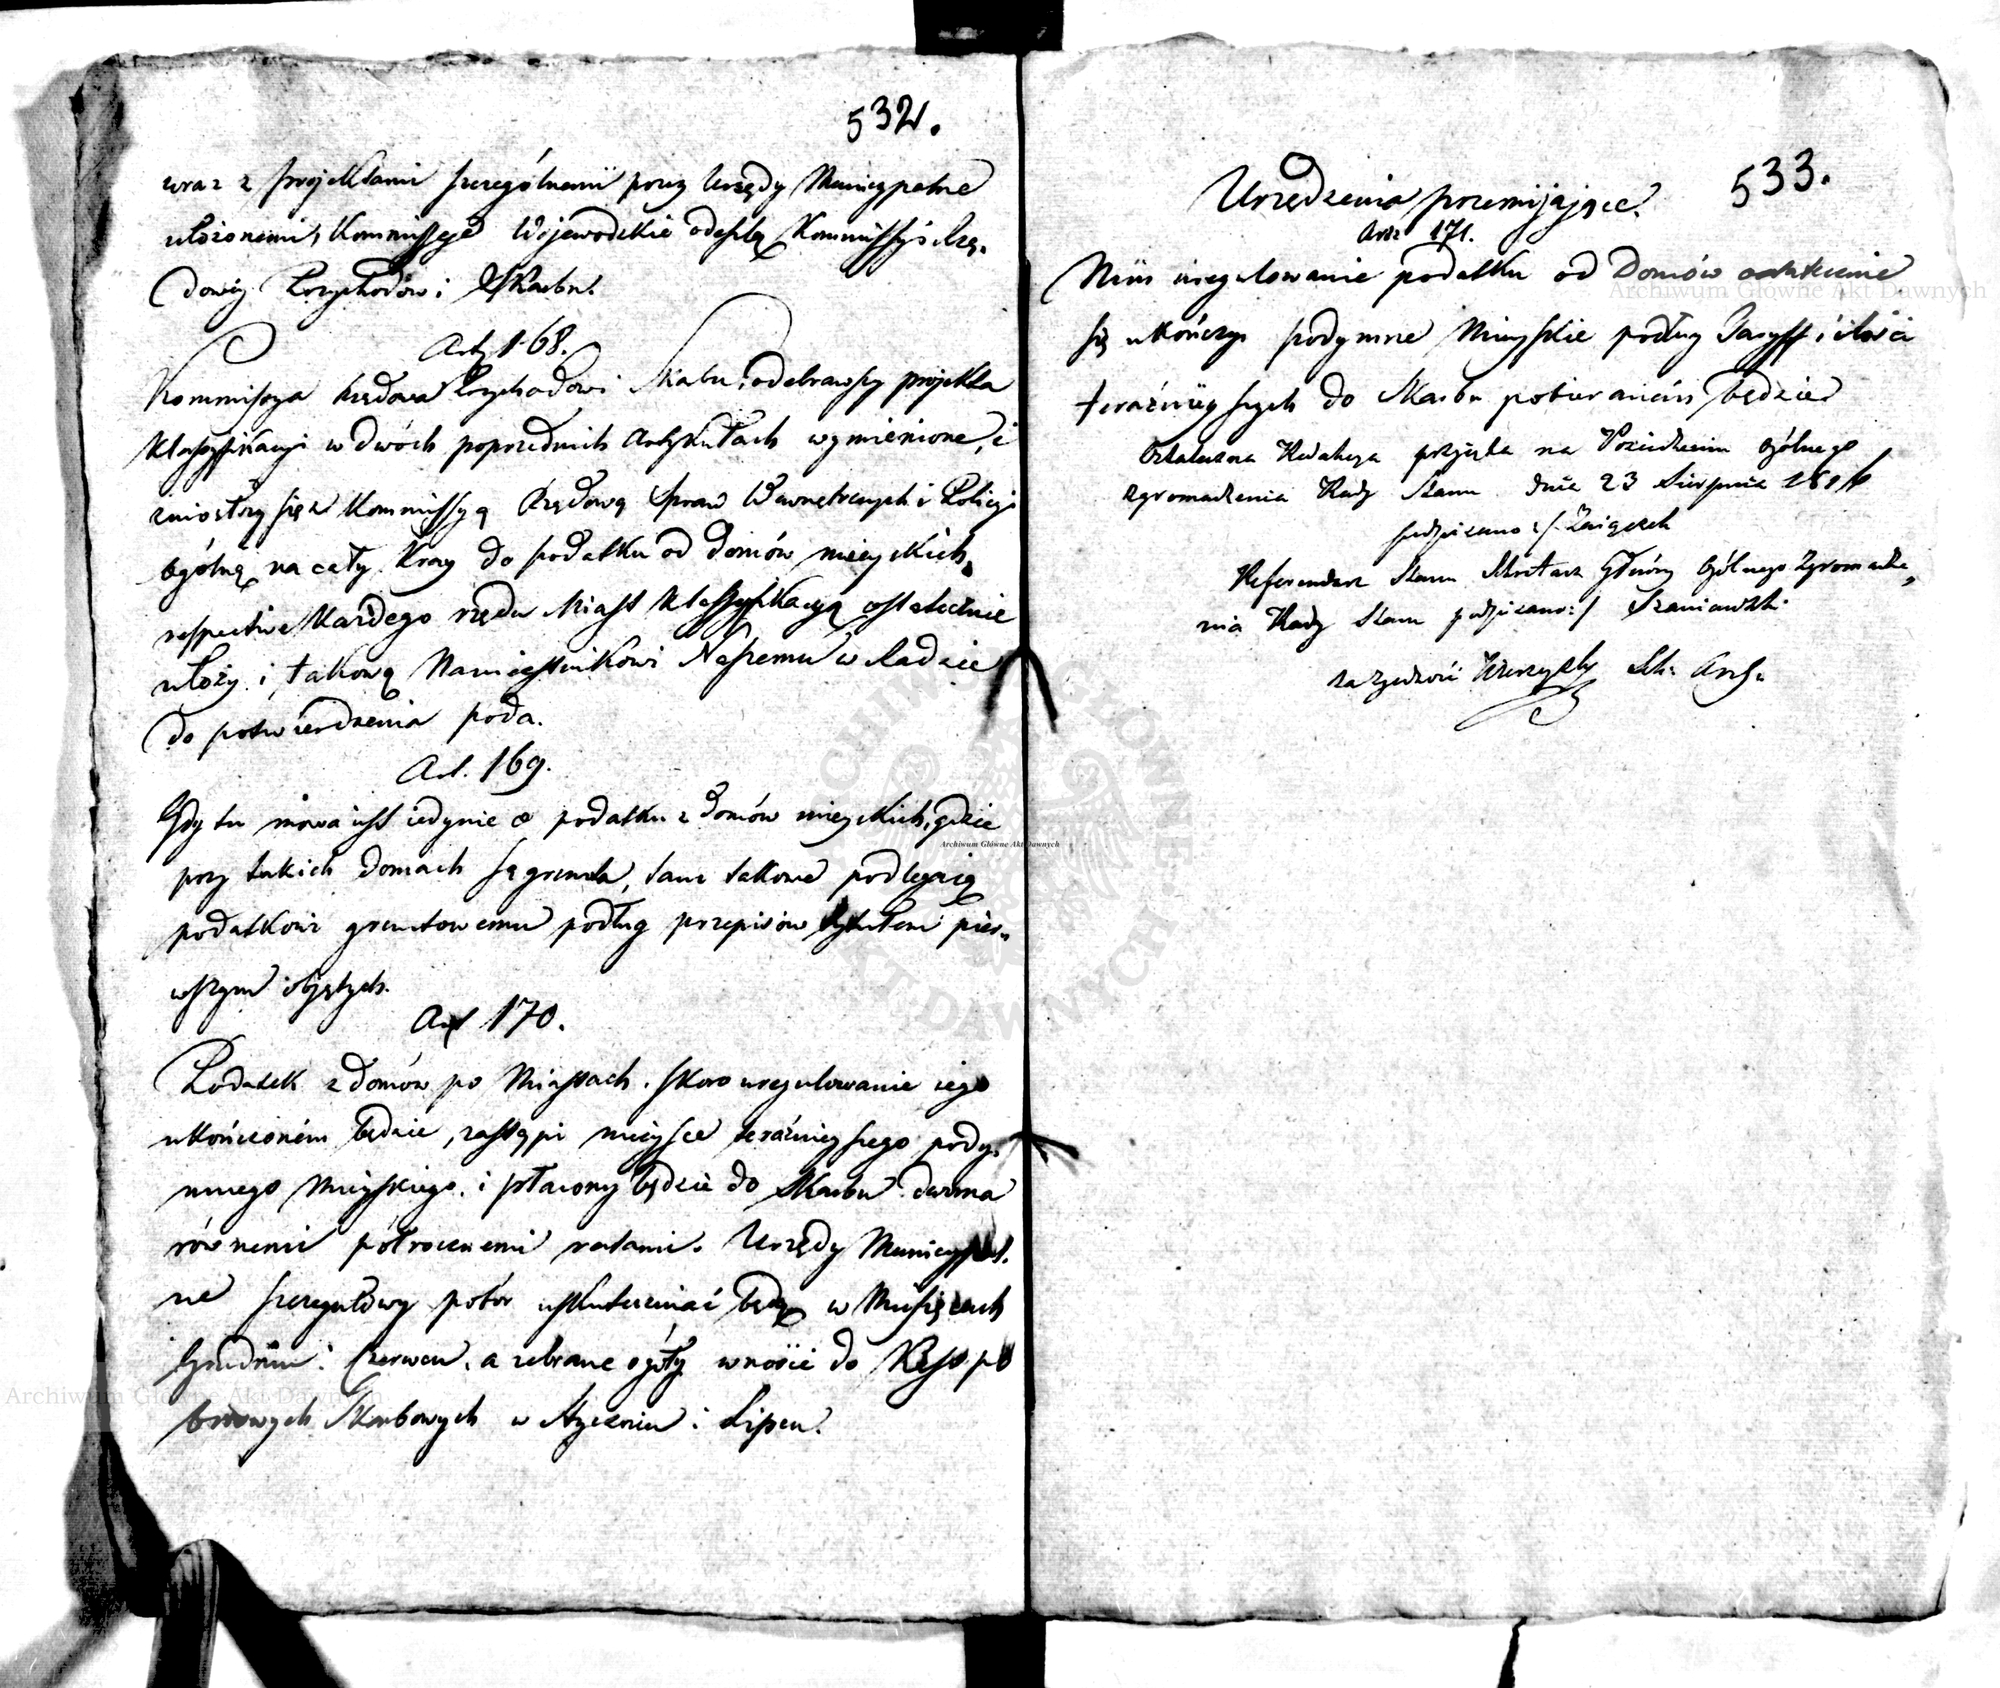 532.
wraz z projektami szczególnemi przez Urzędy Municypalne
ułożonemi, Kommissye Wojewodzkie odeszlą Kommissyi Rzą-
dowey Przychodów i Skarbu.
Art. 168.
Kommissya Rządowa Przychodów i Skarbu, odebrawszy projekta
klassyfikacyi w dwóch poprzednich Artykułach wymienione, i
zniosłszy się z Kommissyą Rządową Spraw Wewnętrznych i Policyi
ogólną na cały Kray do podatku od domów mieyskich,
respective każdego rzędu Miast klassyfikacyą ostatecznie
ułoży i takową Namiestnikowi Naszemu w Radzie
do potwierdzenia poda.
Art. 169.
Gdy tu mowa iest iedynie o podatku z domów mieyskich, gdzie
przy takich domach są grunta, tam takowe podlegaią
podatkowi gruntowemu podług przepisów tytułem pier-
wszym objętych.
Art 170.
Podatek z domów po Miastach, skoro uregulowanie iego
ukończoném będzie, zastąpi mieysce teraźnieyszego pody-
mnego Mieyskiego, i płacony będzie do Skarbu dwoma
równemi półrocznemi ratami. Urzędy Municypal-
ne szczegułowy pobór uskuteczniać będą w Miesiącach
Grudniu i Czerwcu, a zebrane ogóły wnosić do Kass po
borowych Skarbowych w Styczniu i Lipcu.
533.
Urządzenia przemijające.
Art 171.
Nim uregulowanie podatku od Domów ostatecznie
się ukończy podymne Mieyskie podług Taryff i ilości
teraźnieyszych do Skarbu pobieraném będzie
Ostateczna Redakcya przyjęta na Posiedzeniu Ogólnego
Zgromadzenia Rady Stanu dnia 23 Sierpnia
podpisano :/ Zaiączek
Referendarz Stanu Sekretarz Główny Ogólnego Zgromadze-
nia Rady Stanu podpisano :/ Szaniawski
za zgodność
Archiwum Główne Akt Dawnych
Archiwum Główne Akt Dawnych
Archiwum Główne Akt Dawnych
ARCHIWUM GŁÓWNE AKT DAWNYCH